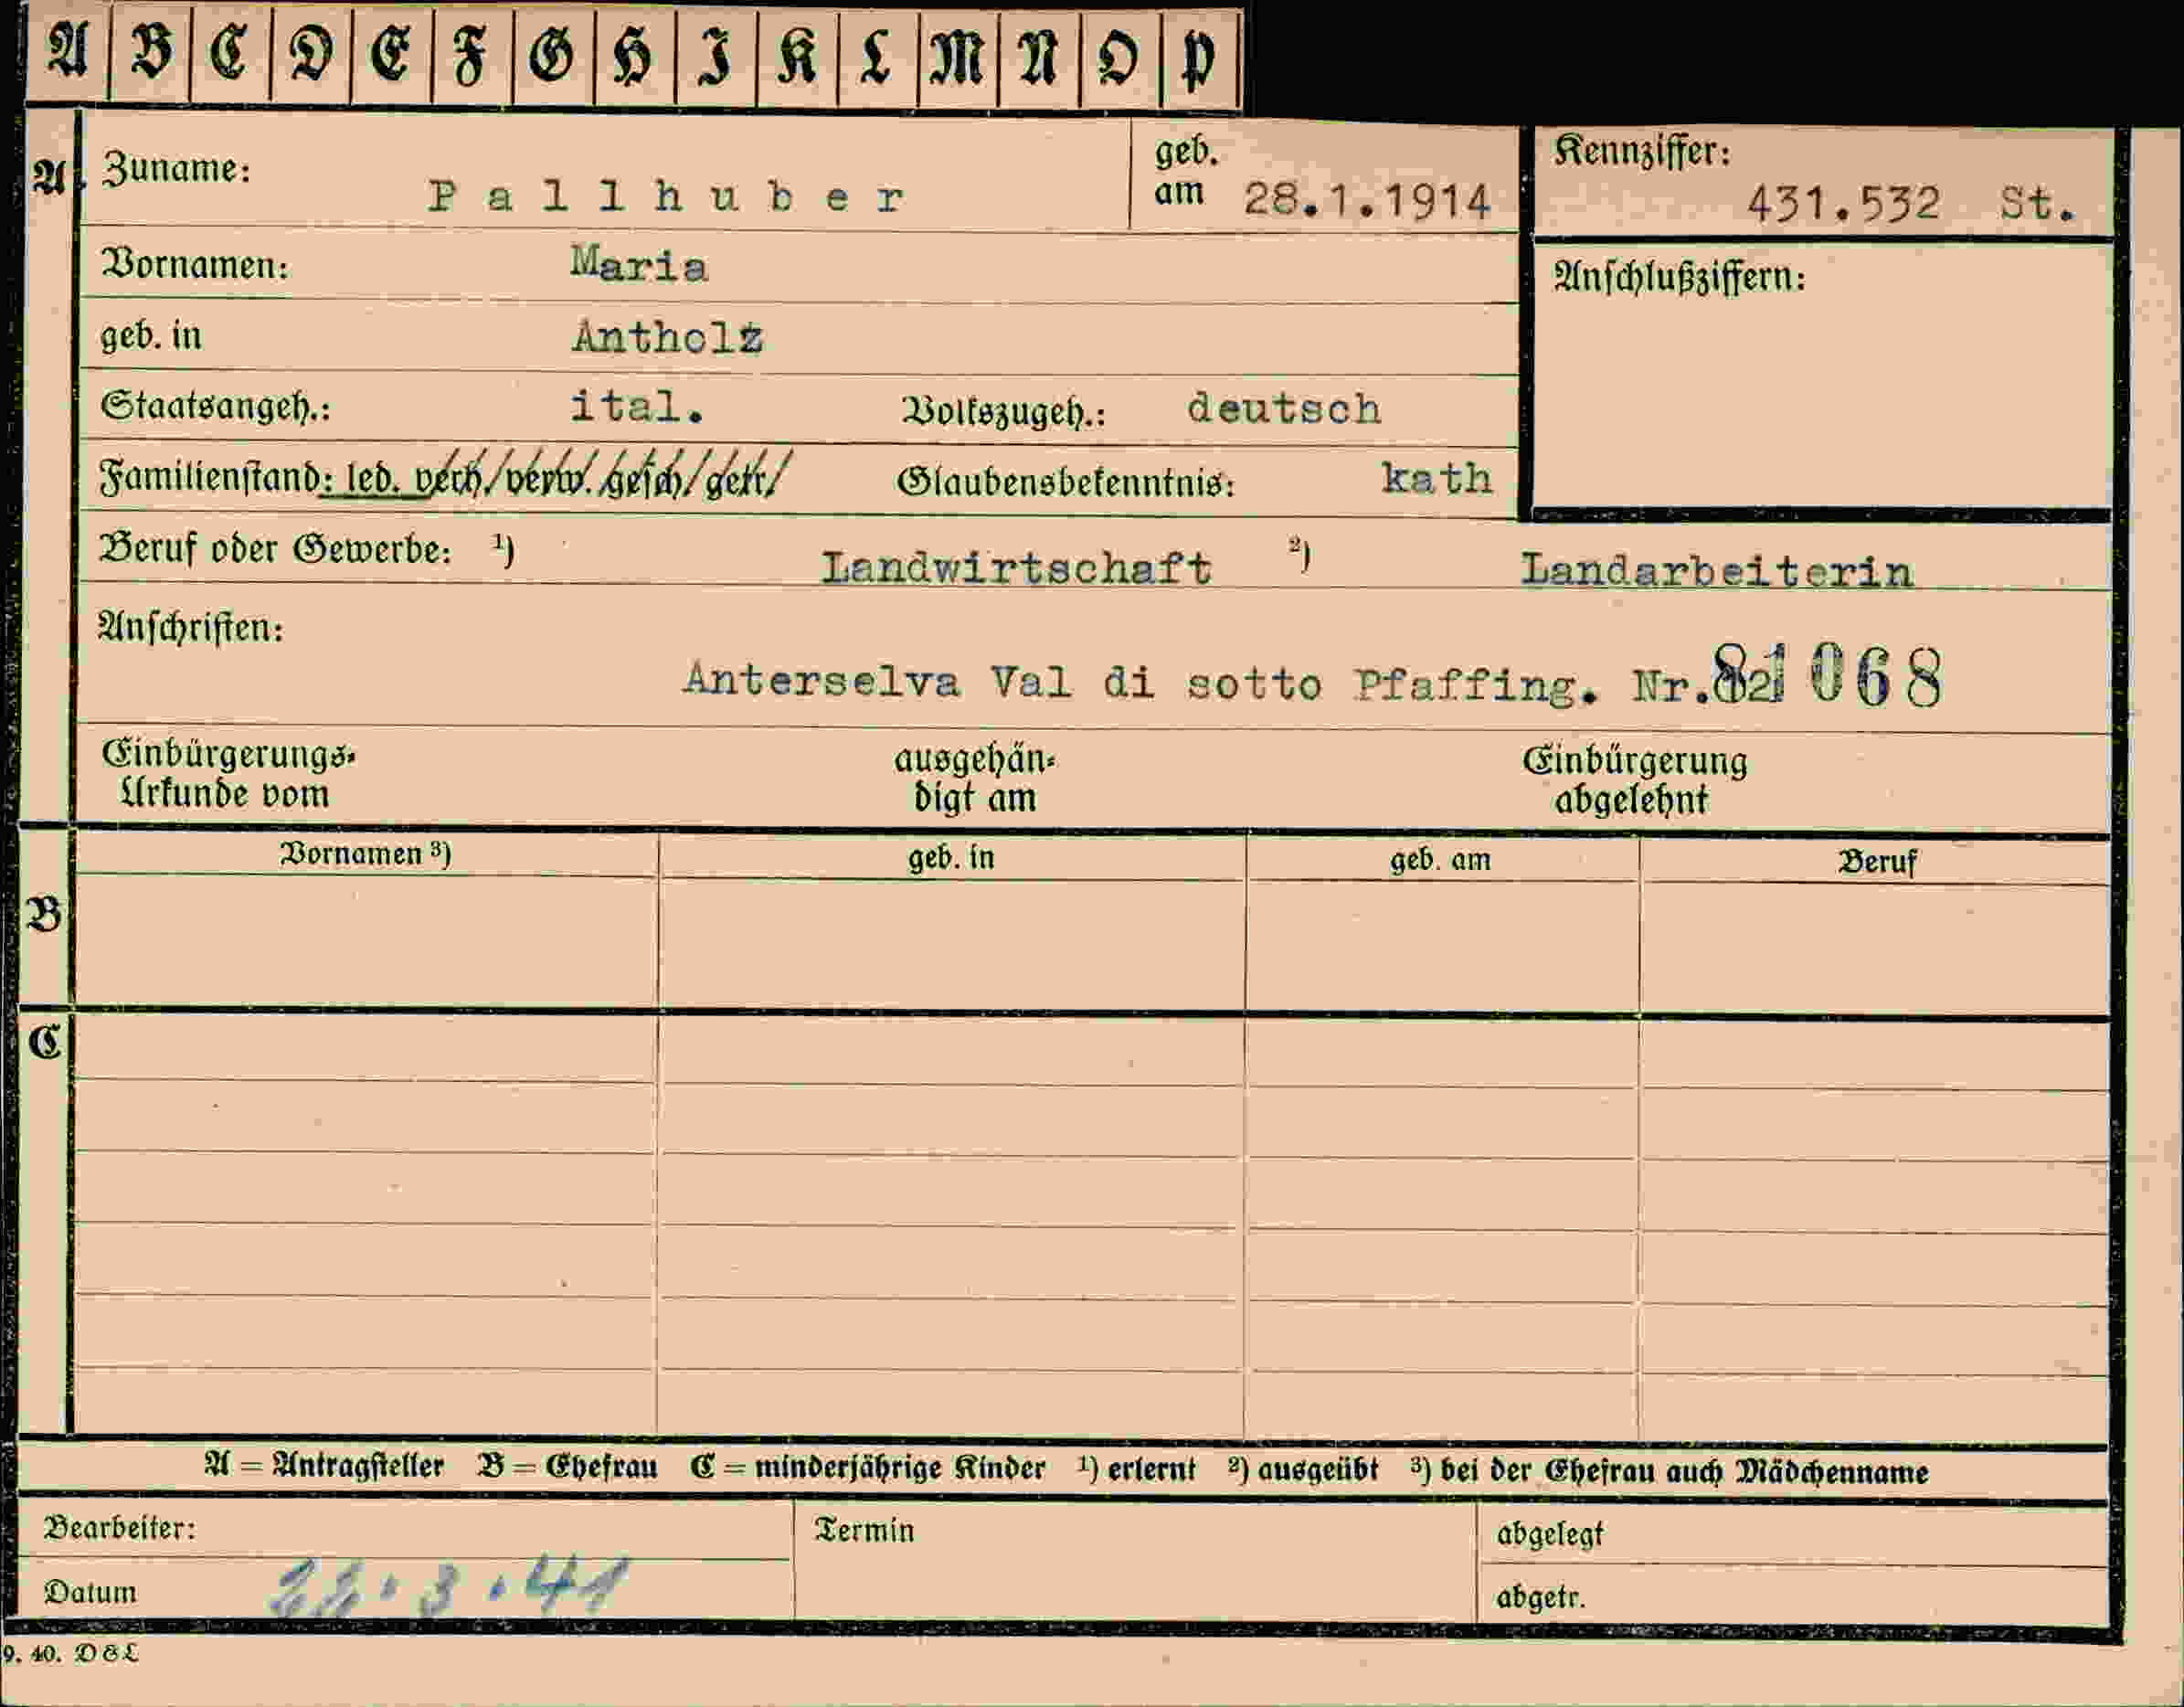 A B C D E F G H I K L M N O P
A Zuname: Pallhuber geb. am 28.1.1914 Kennziffer: 431.532 St.
Vornamen: Maria Anschlußziffern:
geb. in Antholz
Staatsangeh.: ital. Volkszugeh.: deutsch
Familienstand: led. verh./verw./gesch/getr/ Glaubensbekenntnis: kath
Beruf oder Gewerbe: ¹) Landwirtschaft ²) Landarbeiterin
Anschriften:
Anterselva Val di sotto Pfaffing. Nr.
Einbürgerungs- ausgehän- Einbürgerung
Urkunde vom digt am abgelehnt
Vornamen ³) geb. in geb. am Beruf
B
C
A = Antragsteller B = Ehefrau C = minderjährige Kinder ¹) erlernt ²) ausgeübt ³) bei der Ehefrau auch Mädchenname
Bearbeiter: Termin abgelegt
Datum abgetr.
9. 40. D&L